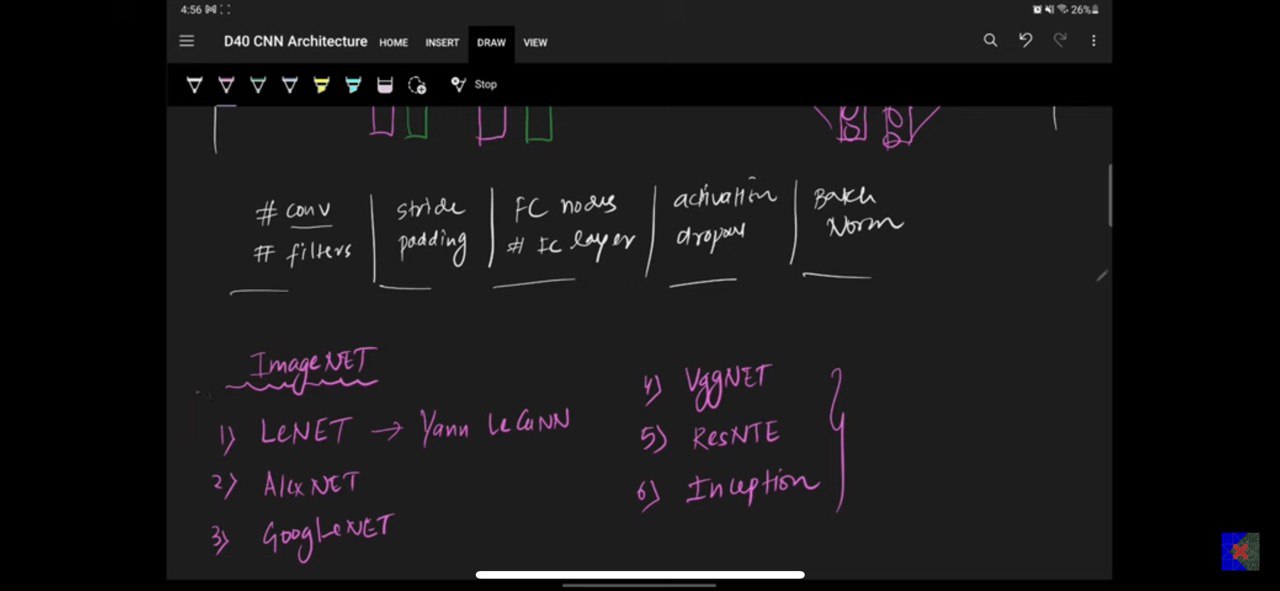 4:56
26%
D40 CNN Architecture HOME INSERT DRAW VIEW
Stop
# conv
# filters
stride
padding
FC nodes
# FC layer
activation
dropout
Batch
Norm
ImageNET
1) LeNET → Yann LeCuNN
2) AlexNET
3) GoogleNET
4) VggNET
5) ResNTE
6) Inception